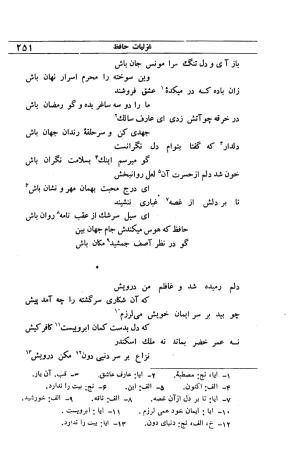 غزلیات حافظ ۲۵۱
باز آی و دل تنگ مرا مونس جان باش
وین سوخته را محرم اسرار نهان باش
زان باده که در میکدهٔ۱ عشق فروشند
ما را دو سه ساغر بده و گو رمضان باش
در خرقه چو آتش زدی ای عارف سالک۲
جهدی کن و سر حلقهٔ رندان جهان باش
دلدار۳ که گفتا بتوام دل نگرانست
گو میرسم اینک۴ بسلامت نگران باش
خون شد دلم از حسرت آن۵ لعل روانبخش
ای درج محبت بهمان مهر و نشان باش۶
تا بر دلش از غصه۷ غباری ننشیند
ای سیل سرشک از عقب نامه۸ روان باش
حافظ که هوس میکندش جام جهان بین
گو در نظر آصف جمشید۹ مکان باش
*
دلم رمیده شد و غافلم من درویش
که آن شکاری سرگشته را چه آمد پیش
چو بید بر سر ایمان خویش میلرزم۱۰
که دل بدست کمان ابرویست۱۱ کافر کیش
نه عمر خضر بماند نه ملک اسکندر
نزاع بر سر دنیی دون۱۲ مکن درویش۱۳
۱- ایا، نچ: مصطبهٔ. ۲- ایا: عارف عاشق. ۳- قب، آن یار.
۴- الف: اکنون. ۵- الف: این. ۶- نچ: بیت را ندارد.
۷- ایا: تا بر دل از آن غصه. ۸- الف: ناقه. ۹- الف: خورشید.
۱۰- ایا: ایمان خود همی لرزم. ۱۱- ایا: ابرویست.
۱۲- خ، الف، نچ: دنیای دون. ۱۳- ایا: بیت را ندارد.